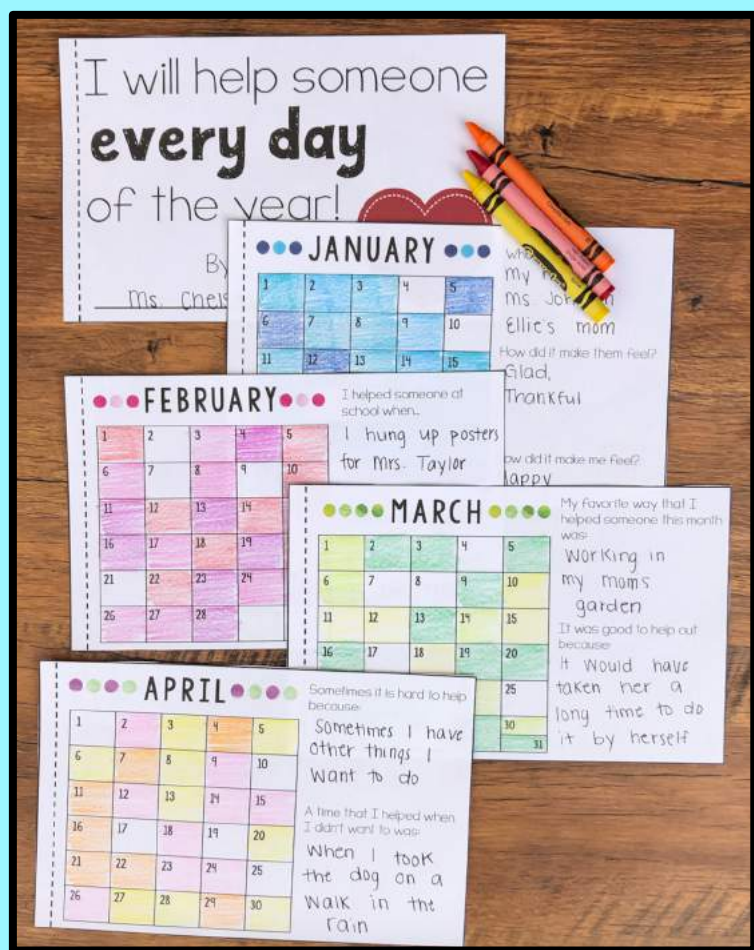 I will help someone
every day
of the year!
By
Ms.
JANUARY
1 2 3 4 5
6 7 8 9 10
11 12 13 14 15
my
ms.
Ellie's mom
How did it make them feel?
Glad,
Thankful
ow did it make me feel?
Happy
FEBRUARY
1 2 3 4 5
6 7 8 9 10
11 12 13 14
16 17 18 19
21 22 23 24
26 27 28
I helped someone at
school when...
I hung up posters
for Mrs. Taylor
MARCH
1 2 3 4 5
6 7 8 9 10
11 12 13 14 15
16 17 18 19 20
25
30
31
My favorite way that I
helped someone this month
was:
Working in
my moms
garden
It was good to help out
because:
it would have
taken her a
long time to do
it by herself
APRIL
1 2 3 4 5
6 7 8 9 10
11 12 13 14 15
16 17 18 19 20
21 22 23 24 25
26 27 28 29 30
Sometimes it is hard to help
because:
Sometimes I have
other things I
want to do
A time that I helped when
I didn't want to was:
When I took
the dog on a
walk in the
rain